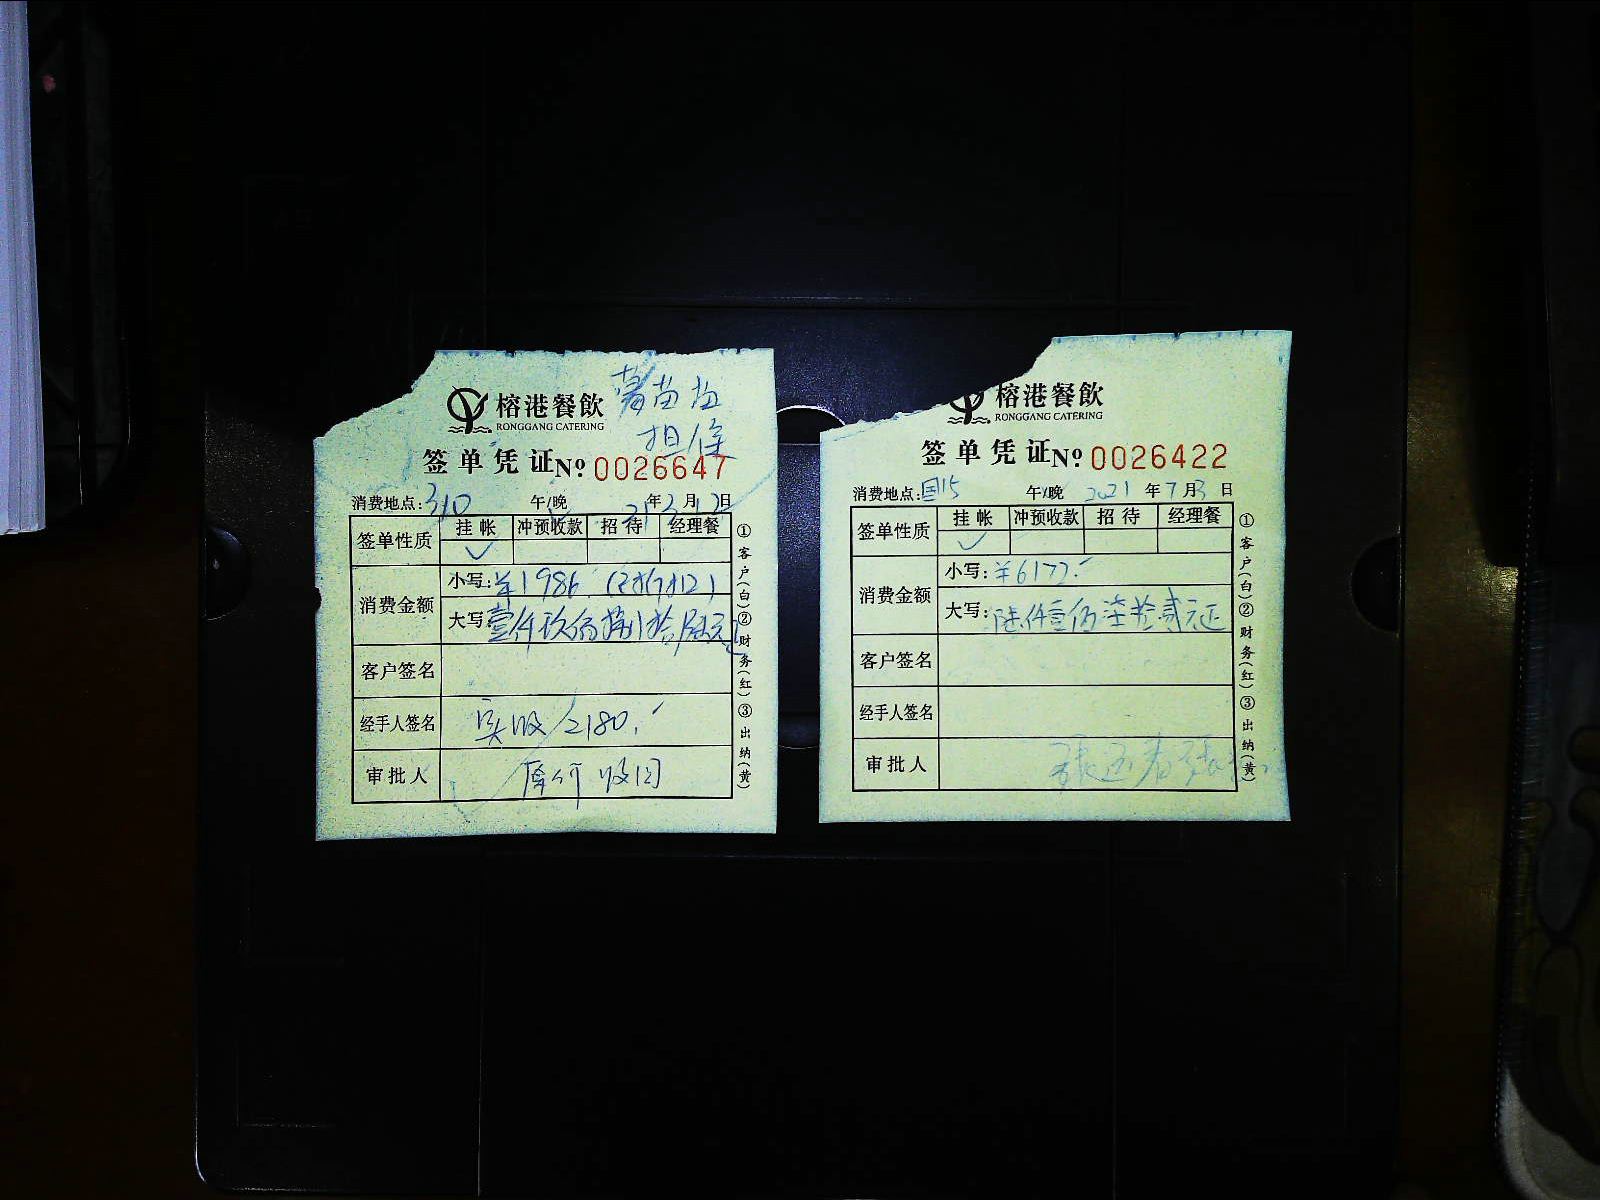 榕港餐飲
RONGGANG CATERING
担保
签单凭证 № 0026647
消费地点: 310 午/晚 21年3月12日
签单性质 挂帐 冲预收款 招待 经理餐
✓
消费金额 小写: ¥1986.
大写: 壹仟玖佰捌拾陆元
客户签名
经手人签名 实收2180.
审批人 原价收回
①客户(白)②财务(红)③出纳(黄)
榕港餐飲
RONGGANG CATERING
签单凭证 № 0026422
消费地点: 国15 午/晚 2021年7月3日
签单性质 挂帐 冲预收款 招待 经理餐
✓
消费金额 小写: ¥6172.-
大写: 陆仟壹佰柒拾贰元正
客户签名
经手人签名
审批人
①客户(白)②财务(红)③出纳(黄)